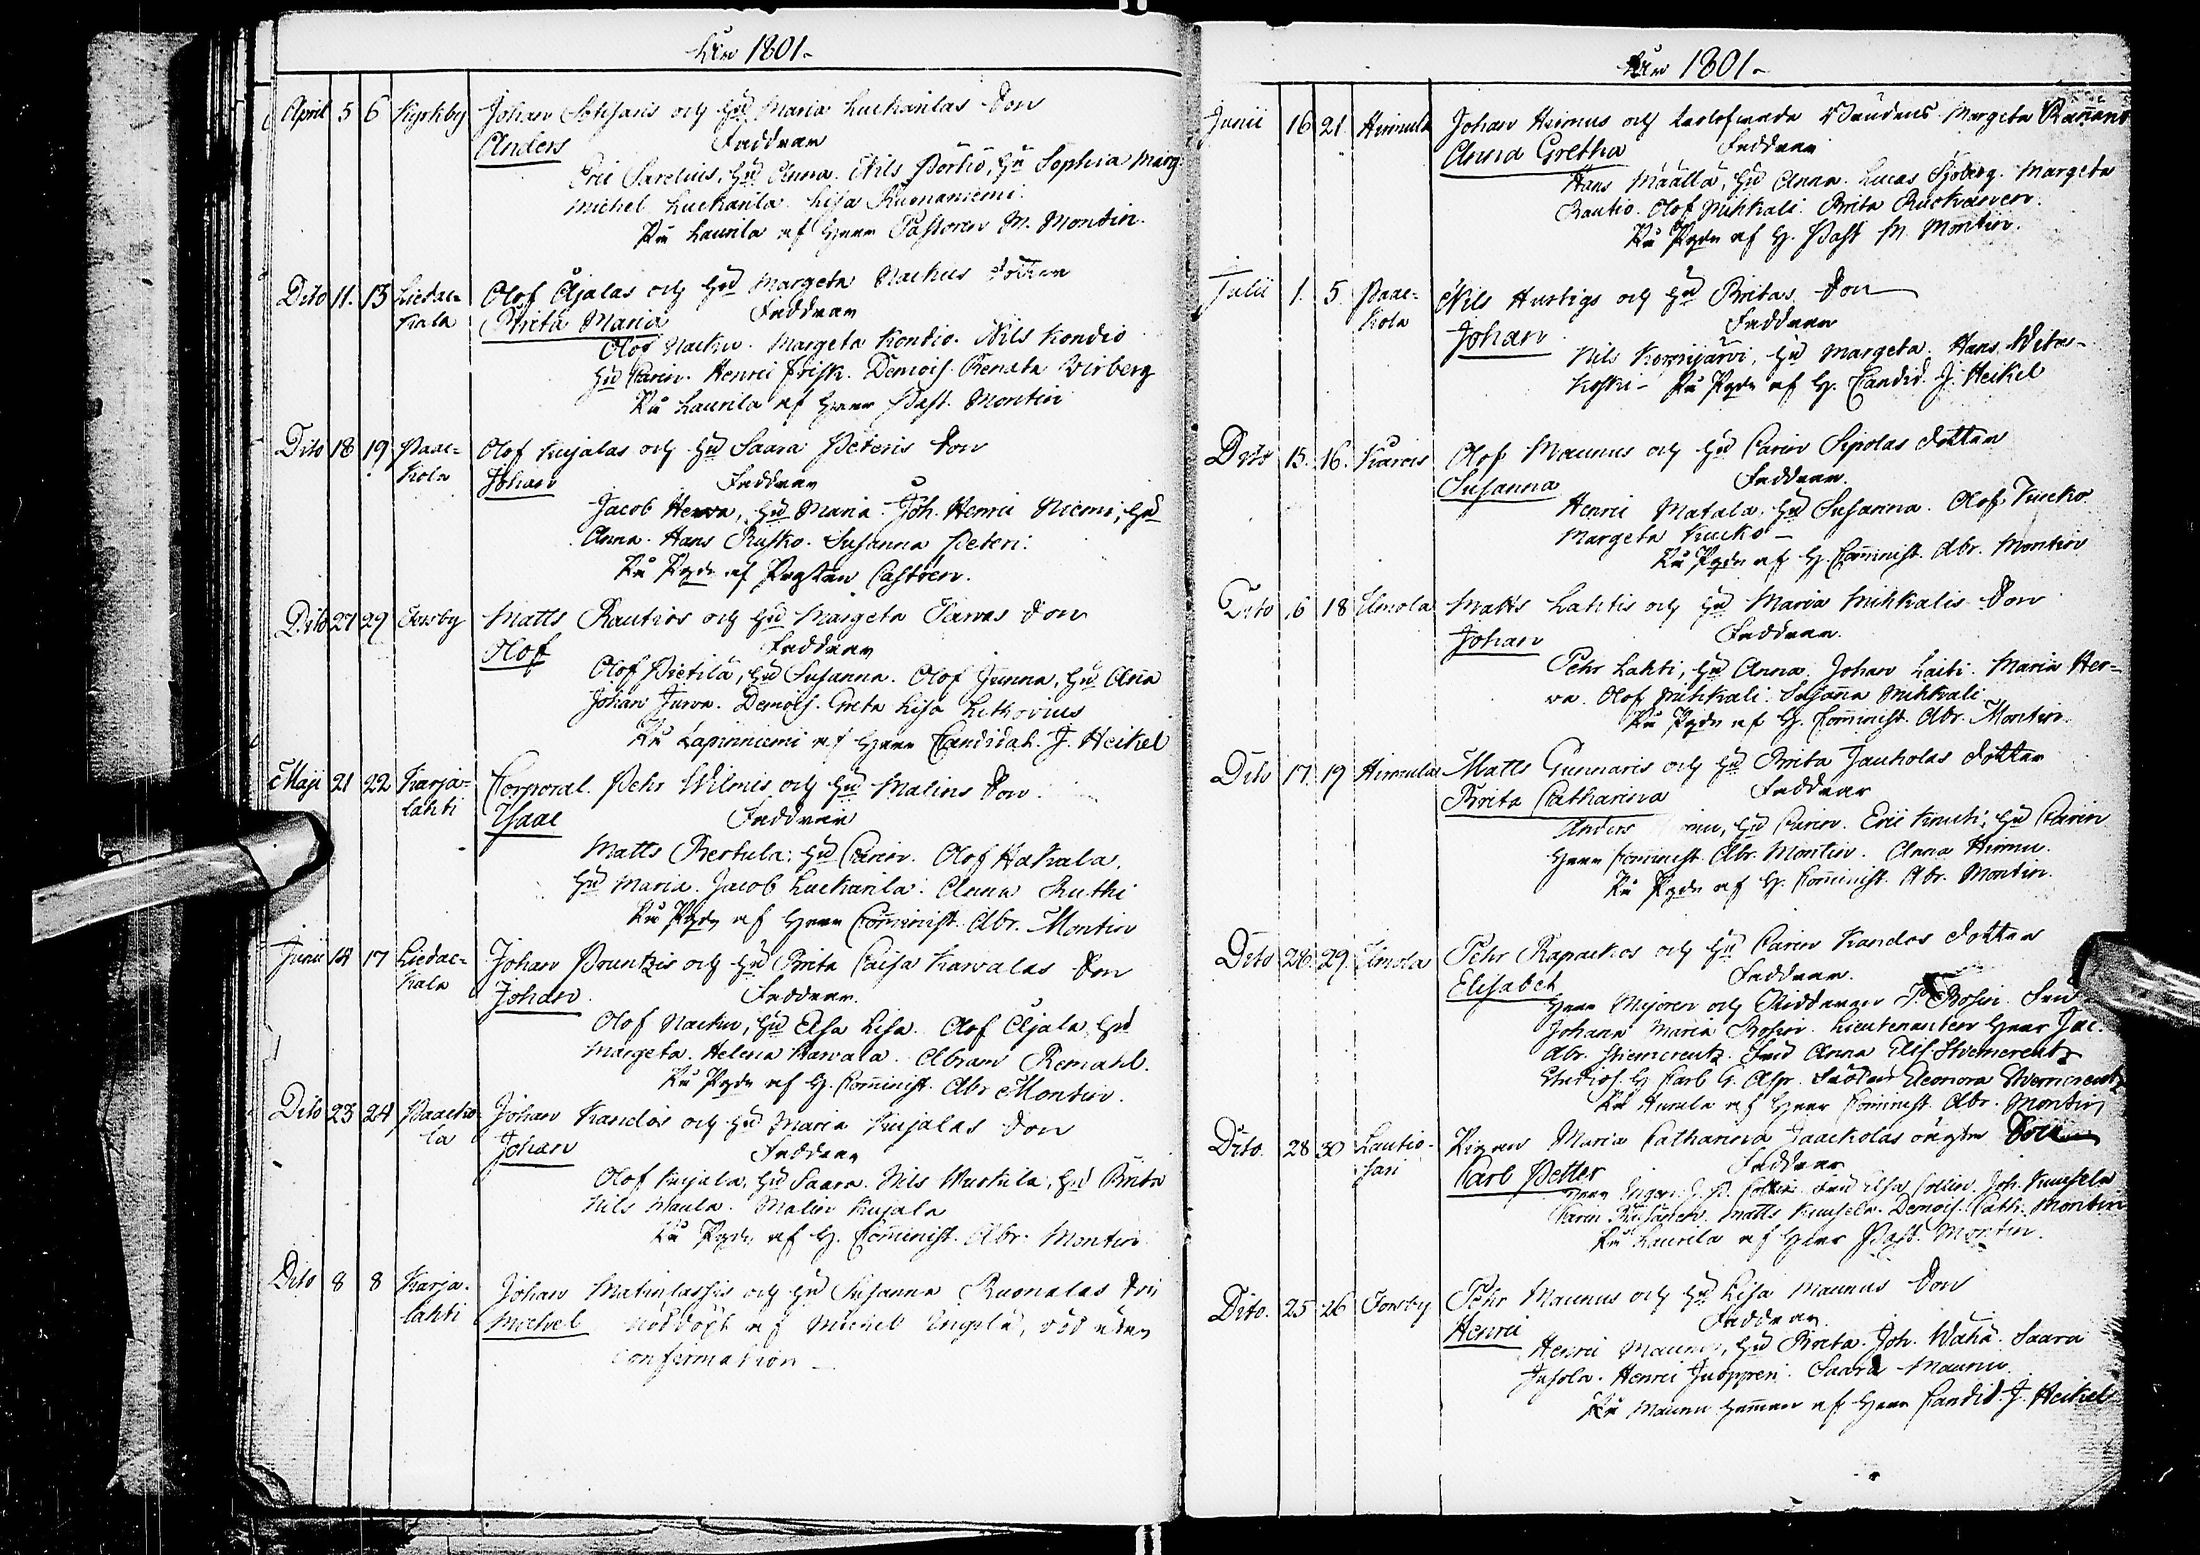 År 1801.
April 5 6 Kyrkby Johan och hu Maria Luckarilas Son
Anders Faddrar
Eric Sarelius, hu Anna. Nils Pörhö, hu Sophia Marg.
Michel Luckarila. Lisa Kumaniemi.
På Laurila af Herr Pastoren M. Montin.
Dito 11. 13 Liedac= Olof Aljalas och hu Margeta Nackus dotter
kala Brita Maria Faddrar
Olof Nacku. Margeta Kondio. Nils Kondio
hu Carin. Henric Frisk. Demois. Renata Wirberg
På Laurila af Herr Past. Montin
Dito 18 19 Paac= Olof Kujalas och hu Saara Peteris Son
kola Johan Faddrar
Jacob Herva, hu Maria. Joh. Henric Niemi, hu
Anna. Hans Rusko. Susanna Peteri.
På Pgdn af Castren.
Dito 27 29 Torsby Matts Rautios och hu Margeta Son
Olof Faddrar
Olof Pietilä, hu Susanna. Olof Junna, hu Anna
Johan Juwa. Demois. Greta Lisa Lithovius
På Lapinniemi af Herr Candidat. J. Heikel
Maji 21 22 Karja= Corporal. Pehr Wilmis och hu Malins Son
lahti Isaac Faddrar
Matts Bertula, hu Carin. Olof Hakala.
hu Maria. Jacob Luckarila. Anna Ruthi
På Pgdn af Herr Comminist. Abr. Montin
Junii 14 17 Liedac= Johan Pruntzis och hu Brita Caisa Karvalas Son
kala Johan Faddrar
Olof Nacku, hu Elsa Lisa. Olof Aljala, hu
Margeta. Helena Karvala. Abram Remahl.
På Pgdn af H. Comminist. Abr Montin.
Dito 23 24 Paacko Johan Kandos och hu Maria Kujalas Son
la Johan Faddrar
Olof Kujala, hu Saara. Nils Wuekula, hu Brita
Nils Maula. Malin Kujala
På Pgdn af H. Comminist. Abr. Montin
Dito 8 8 Karja= Johan Matinlassis och hu Susanna Ruonalas
lahti Michel nöddöpt af Michel Engelä, död utan
confirmation

År 1801.
Junii 16 21 Hirmula Johan Hirmus och trolofvade Margeta
Anna Gretha Faddrar
Hans Määttä, hu Anna. Lucas Sjöberg. Margeta
Rautio. Olof Mikkali. Brita Ruckanen.
På Pgdn af H. Past M. Montin.
Julii 1. 5. Paac= Nils Hurtigs och hu Britas Son
kola Johan Faddrar
Nils hu Margeta. Hans Witas=
koski – På Pgdn af H. Candid. J. Heikel
Dito 15. 16. Olof Maunus och hu Carin Sipolas dotter
Susanna Faddrar.
Henric Matala, hu Susanna. Olof Kucko
Margeta Kucko –
På Pgdn af H. Comminist. Abr. Montin
Dito 6 18 Elmola Matts Lahtis och hu Maria Mikkalis Son
Johan Faddrar.
Pehr Lahti, hu Anna. Johan Laiti. Maria Her=
va. Olof Mikkali. Susanna Mikkali
På Pgdn af H. Comminist. Abr. Montin.
Dito 17 19 Hirmula Matts Gunnaris och hu Brita Jauholas dotter
Brita Catharina Faddrar
Anders hu Carin. Eric hu Carin
Herr Comminist. Abr. Montin. Anna Hirmu.
På Pgdn af H. Comminist. Abr. Montin.
Dito 26. 29. Elmola Pehr Rapackos och hu Carin Kandos dotter
Elisabet Faddrar.
Herr Majoren och Riddaren P. Rosin. Fru
Johana Maria Rosin. Lieutenanten Herr Jac.
Abr. Fru Anna Elis.
H. Carl G. Asp. Fröken Eleonora
På af Herr Cominist. Abr. Montin
Dito. 28 30 Lautio= Pigan Maria Catharina Jaackolas oägta Son
sari Carl Petter Faddrar
Herr J. P. Collin. Fru Elsa Collin. Joh. Kuusela
Carin Matts Kuusela. Demois. Cath. Montin
På Laurila af Herr Past. Montin.
Dito. 25 26 Torsby Pehr Maunus och hu Lisa Maunus Son
Henric Faddrar.
Henric Maunu, hu Brita. Joh. Wähä. Saara
Jusola. Henric Juopperi. Saara Maunu
På Maunu hemman af Herr Candid. J. Heikel